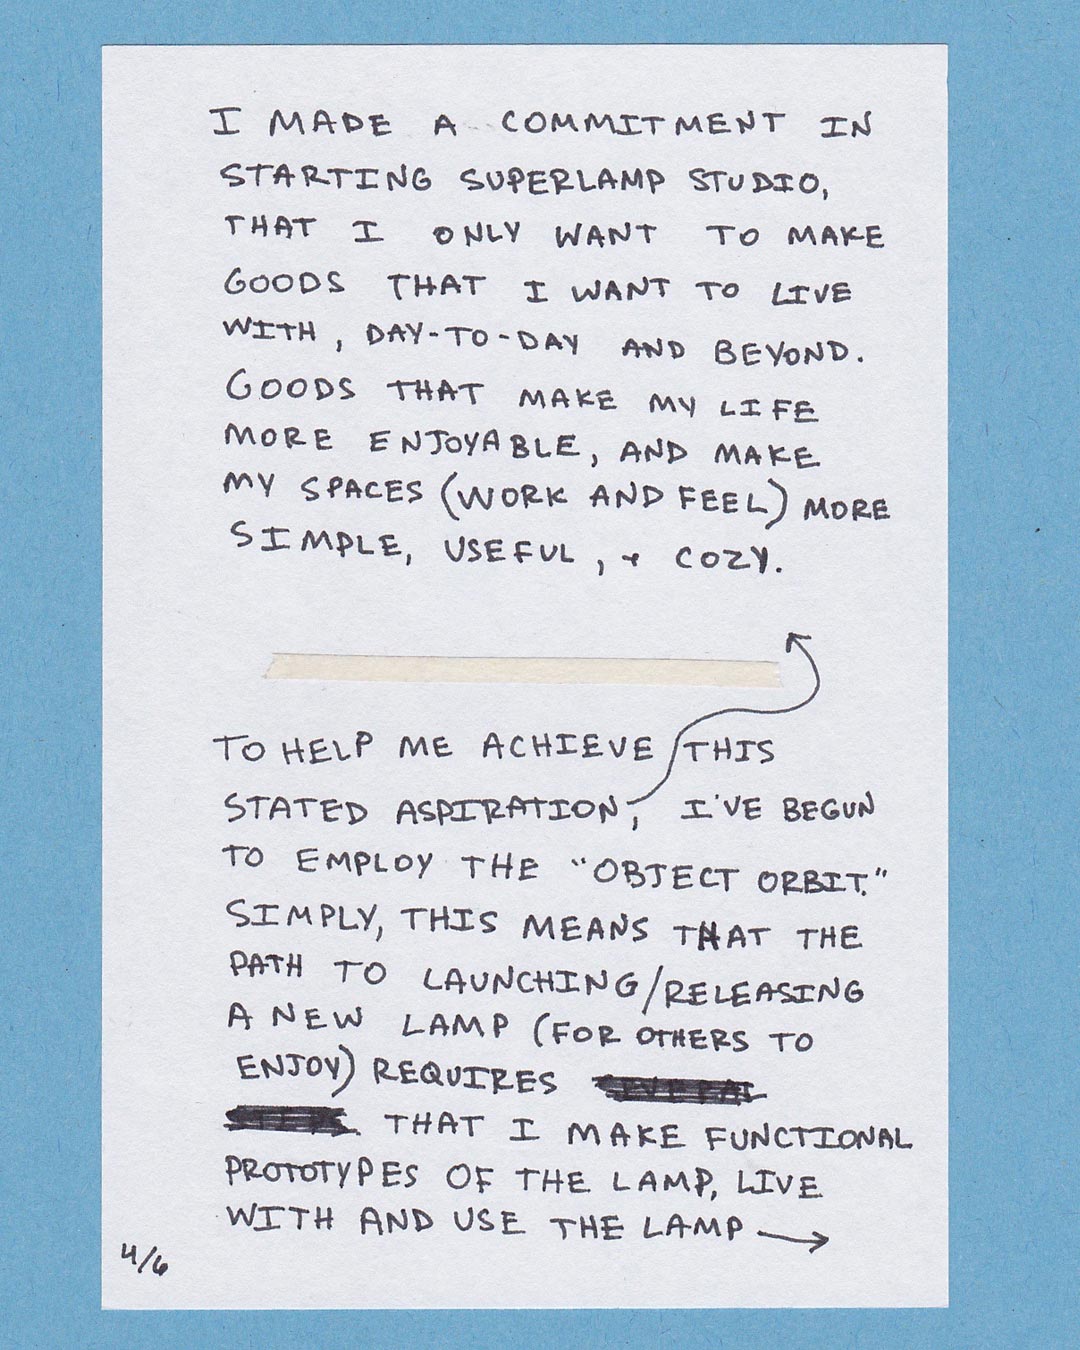 I MADE A COMMITMENT IN
STARTING SUPERLAMP STUDIO,
THAT I ONLY WANT TO MAKE
GOODS THAT I WANT TO LIVE
WITH, DAY-TO-DAY AND BEYOND.
GOODS THAT MAKE MY LIFE
MORE ENJOYABLE, AND MAKE
MY SPACES (WORK AND FEEL) MORE
SIMPLE, USEFUL, + COZY.
TO HELP ME ACHIEVE THIS
STATED ASPIRATION, I'VE BEGUN
TO EMPLOY THE "OBJECT ORBIT."
SIMPLY, THIS MEANS THAT THE
PATH TO LAUNCHING/RELEASING
A NEW LAMP (FOR OTHERS TO
ENJOY) REQUIRES
THAT I MAKE FUNCTIONAL
PROTOTYPES OF THE LAMP, LIVE
WITH AND USE THE LAMP →
4/6